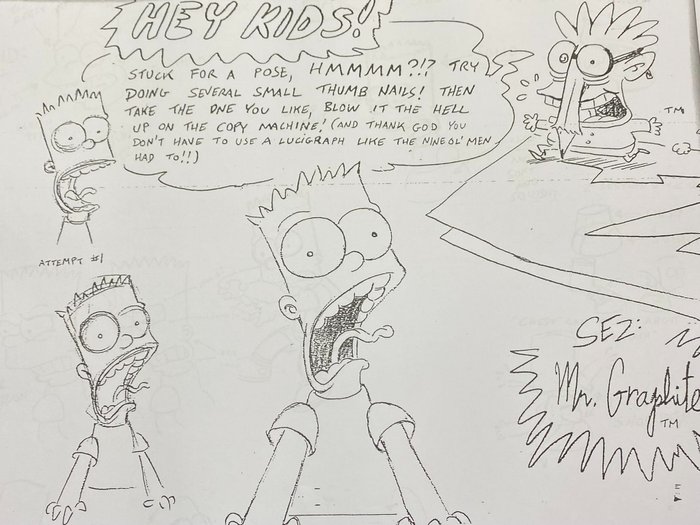 HEY KIDS!
STUCK FOR A POSE, HMMMM?!? TRY
DOING SEVERAL SMALL THUMB NAILS! THEN
TAKE THE ONE YOU LIKE, BLOW IT THE HELL
UP ON THE COPY MACHINE! (AND THANK GOD YOU
DON'T HAVE TO USE A LUCIGRAPH LIKE THE NINE OL' MEN
HAD TO!!)
TM
ATTEMPT #1
SEZ:
Mr. Graphite
TM